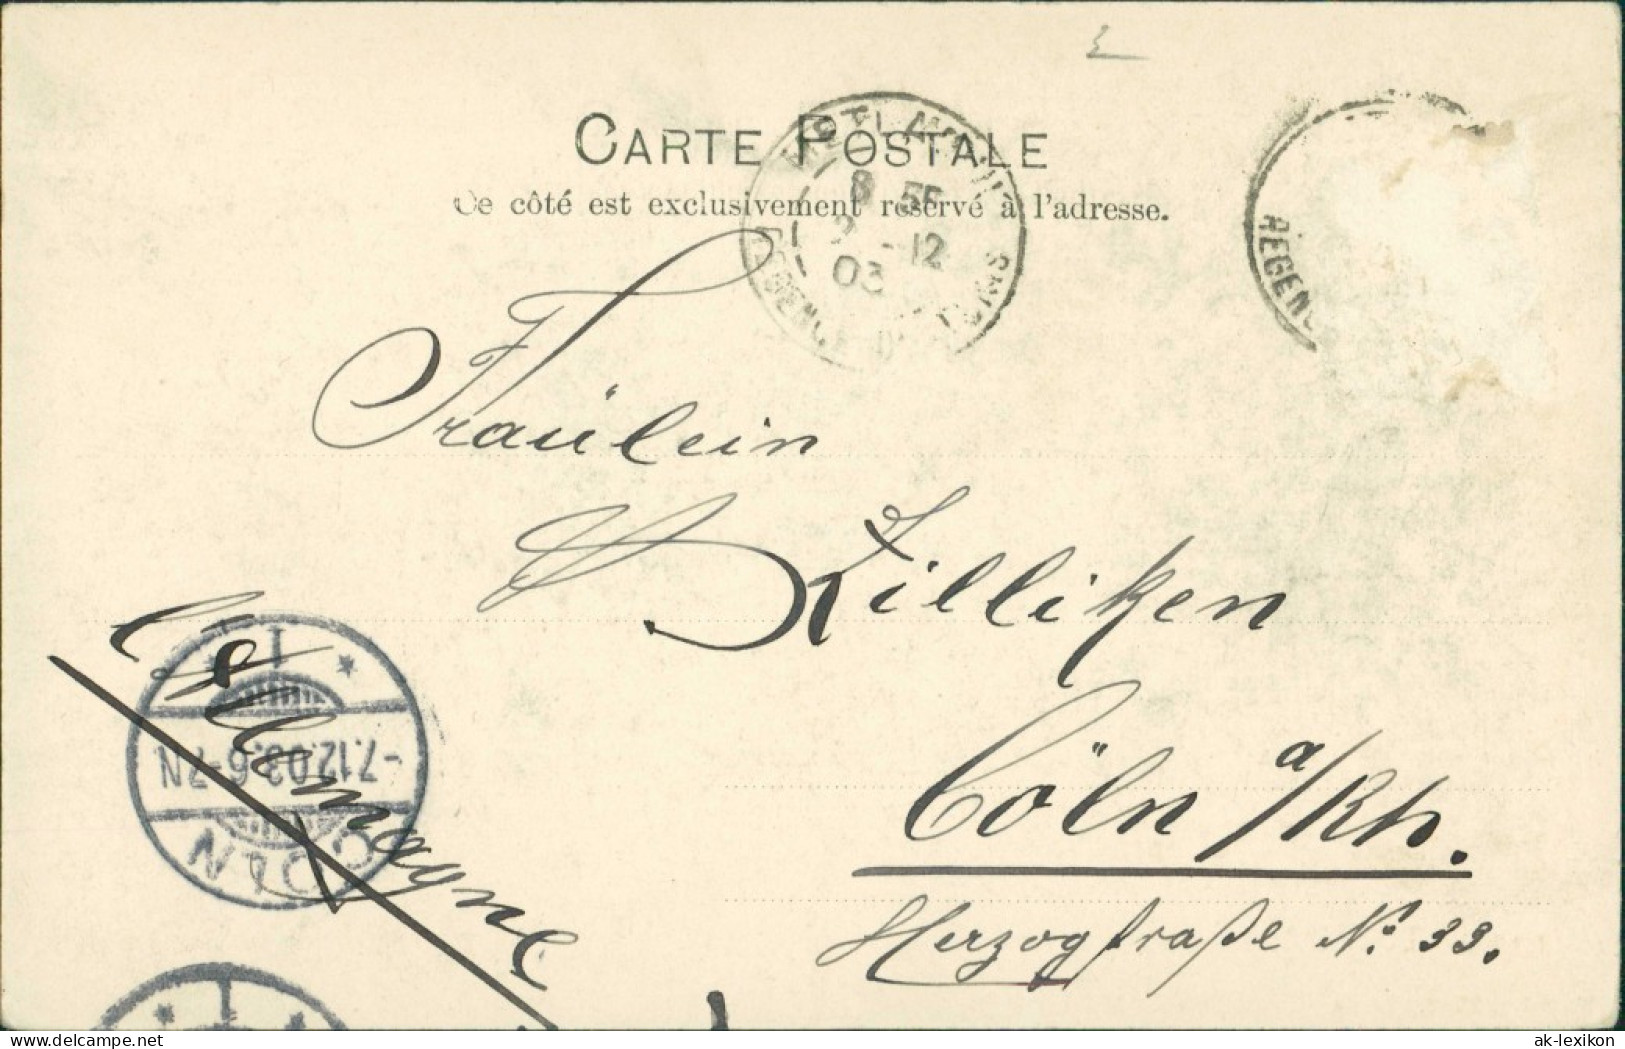 CARTE POSTALE
Ce côté est exclusivement réservé à l'adresse.
8 55
12
03
REGENC
Fräulein
Zilliken
Cöln a/Rh.
Herzogstraße No. 33.
Allemagne
CÖLN
-7.12.03.6-7N
1
ak-lexikon